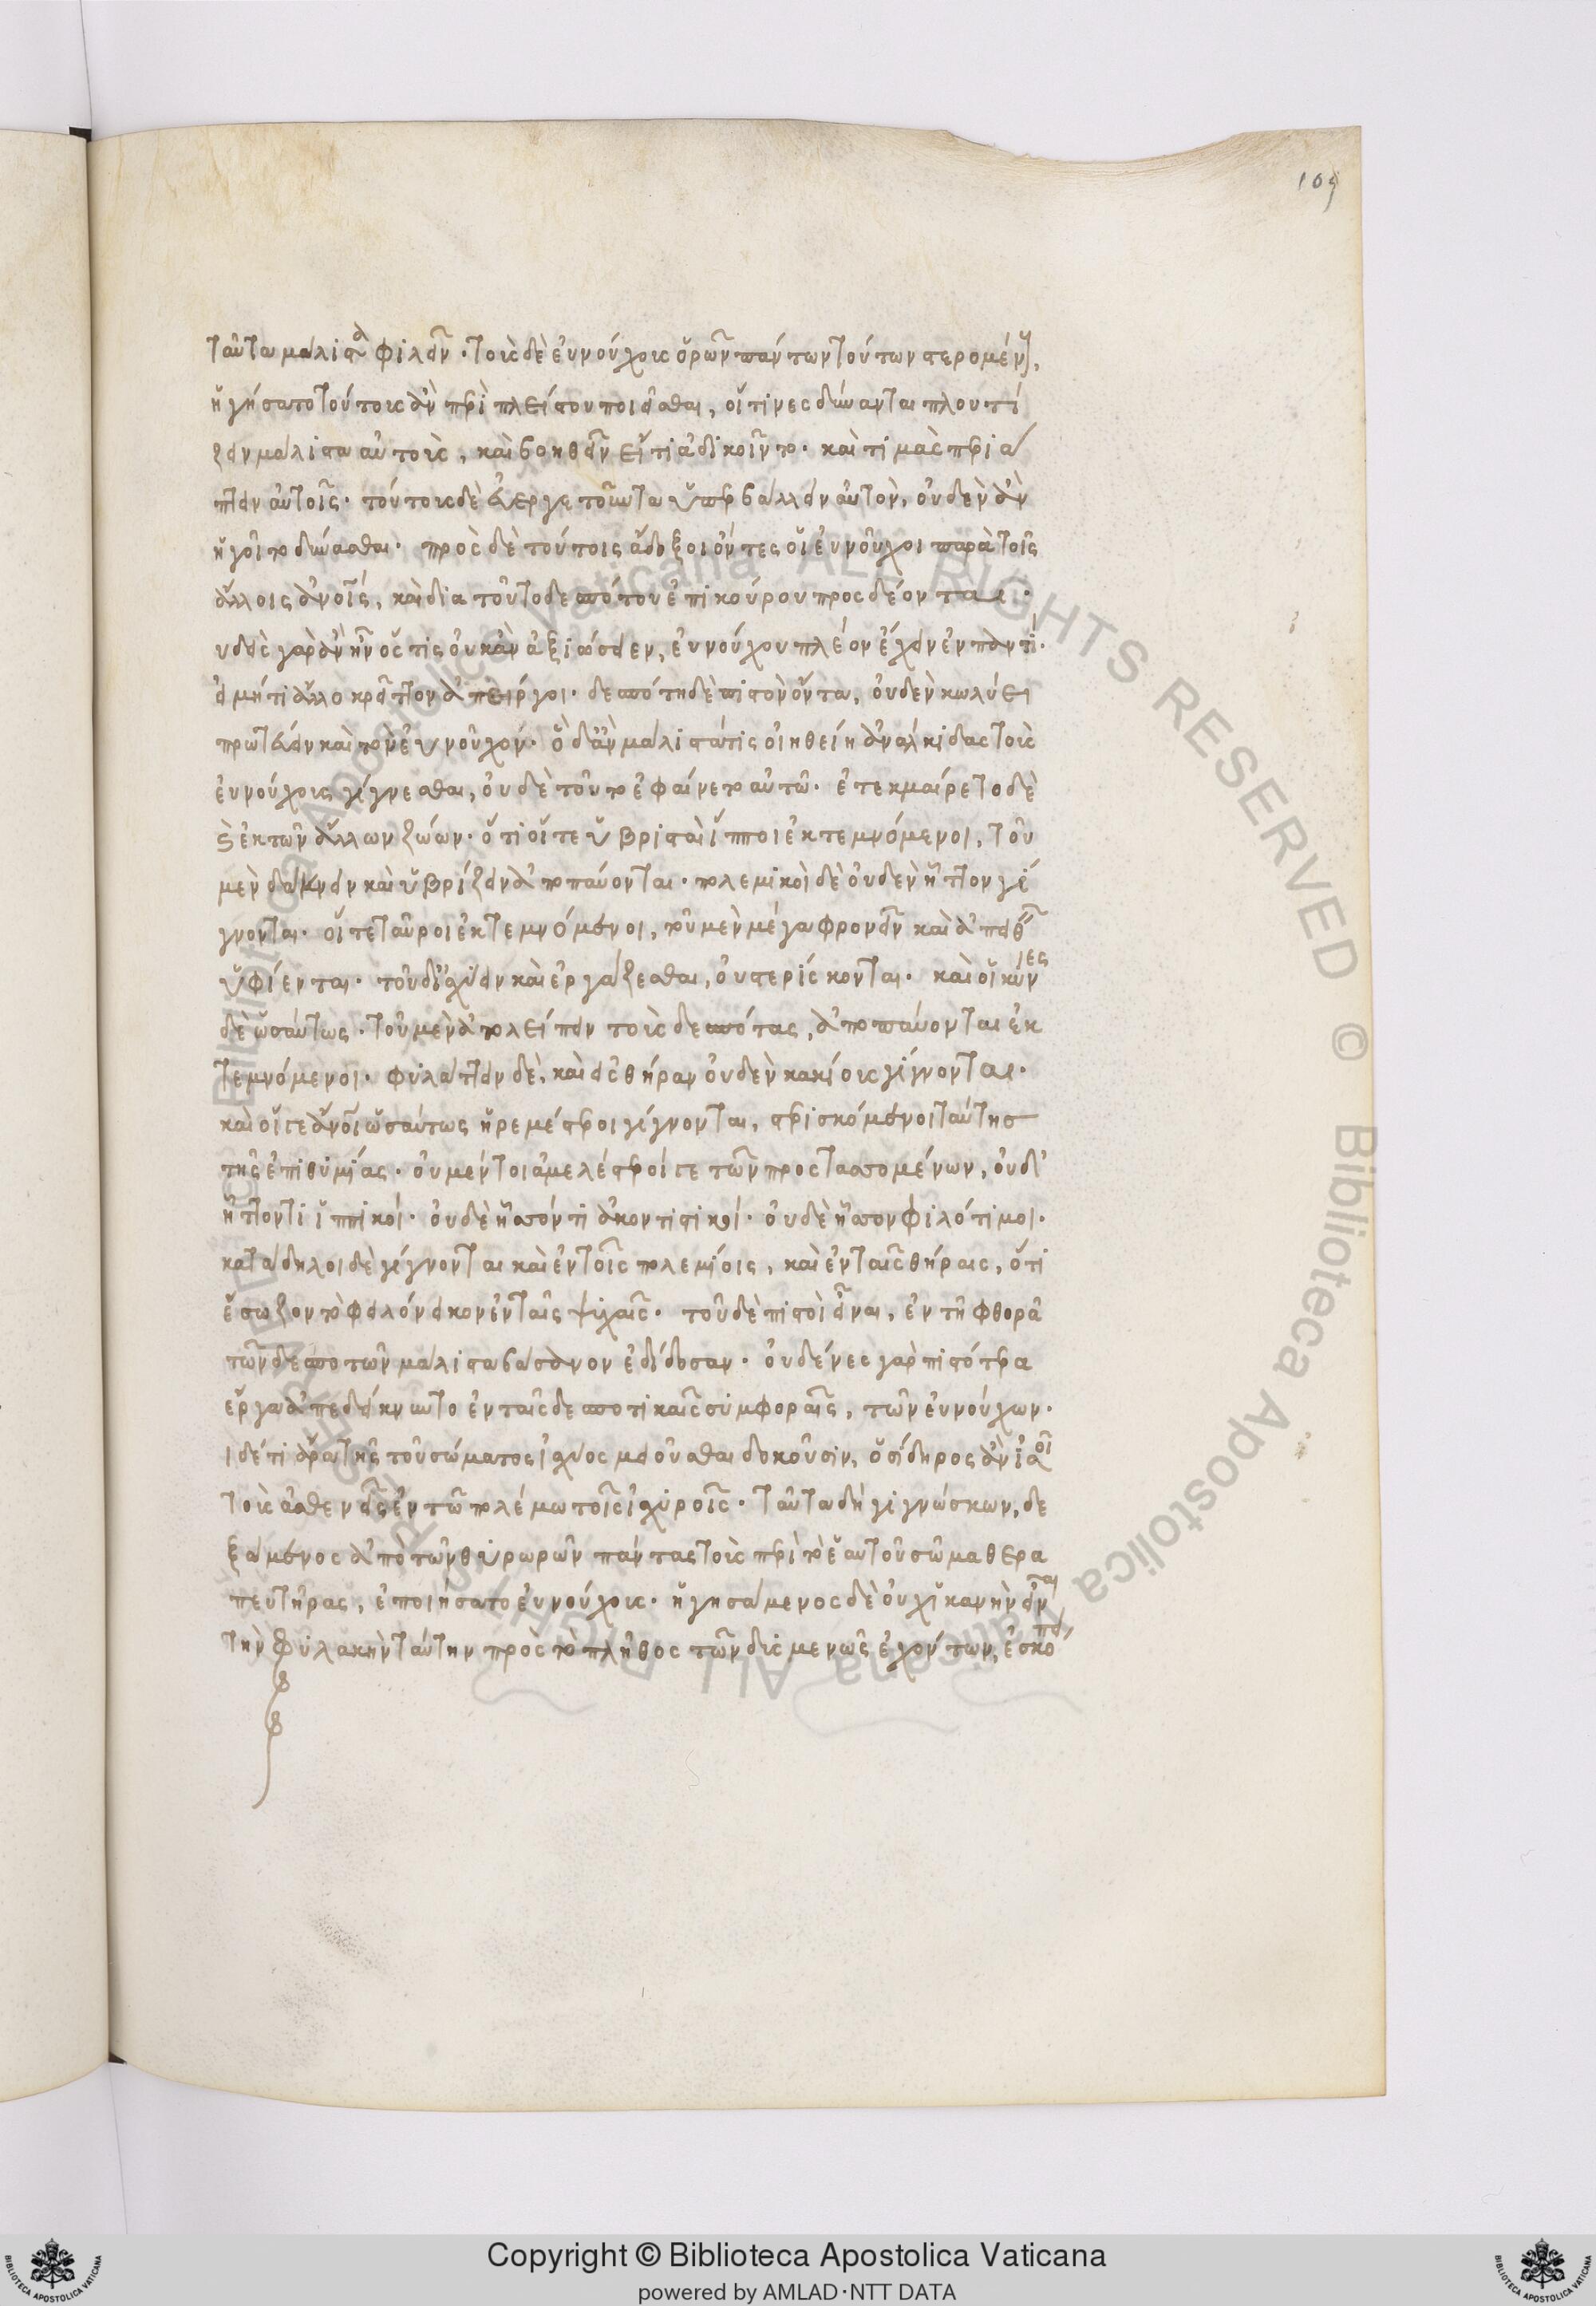 109
ταῦτα μάλιστα φιλεῖν. τοὺς δὲ εὐνούχους ὁρῶν πάντων τούτων στερομένους,
ἡγήσατο τούτους ἂν περὶ πλείστου ποιεῖσθαι, οἵτινες δύναιντο πλουτί
ζειν μάλιστα αὐτοὺς, καὶ βοηθεῖν εἴ τι ἀδικοῖντο. καὶ τιμὰς περιά
πτειν αὐτοῖς. τούτους δὲ εὐεργετοῦντα ὑπερβάλλειν αὐτὸν, οὐδὲν ἂν
ἡγοῖτο δύνασθαι. πρὸς δὲ τούτοις ἄδοξοι ὄντες οἱ εὐνοῦχοι παρὰ τοῖς
ἄλλοις ἀνοις, καὶ διὰ τοῦτο δεσπότου ἐπικούρου προσδέονται.
υδεὶς γὰρ ἀνὴρ ὅστις οὐκ ἂν ἀξιώσειεν, εὐνούχου πλέον ἔχειν ἐν παντί.
εἰ μή τι ἄλλο κρεῖττον ἀπείργοι. δεσπότη δὲ πιστὸν ὄντα, οὐδὲν κωλύει
πρωτεύειν καὶ τὸν εὐνοῦχον. ὃ δ' ἂν μάλιστά τις οἰηθείη ἀνάλκιδας τοὺς
εὐνούχους γίγνεσθαι, οὐδὲ τοῦτο ἐφαίνετο αὐτῶ. ἐτεκμαίρετο δὲ
καὶ ἐκ τῶν ἄλλων ζώων. ὅτι οἵ τε ὑβρισταὶ ἵπποι ἐκτεμνόμενοι, τοῦ
μὲν δάκνειν καὶ ὑβρίζειν ἀποπαύονται. πολεμικοὶ δὲ οὐδὲν ἧττον γί
γνονται. οἵ τε ταῦροι ἐκτεμνόμενοι, τοῦ μὲν μέγα φρονεῖν καὶ ἀπειθεῖν
ὑφίενται. τοῦ δ' ἰσχύειν καὶ ἐργάζεσθαι, οὐ στερίσκονται. καὶ οἱ κύνες
δὲ ὡσαύτως. τοῦ μὲν ἀπολείπειν τοὺς δεσπότας, ἀποπαύονται ἐκ
τεμνόμενοι. φυλάττειν δὲ, καὶ εἰς θήραν οὐδὲν κακίους γίγνονται.
καὶ οἵ γε ἄνοι ὡσαύτως ἠρεμέστεροι γίγνονται, στερισκόμενοι ταύτης
τῆς ἐπιθυμίας. οὐ μέντοι ἀμελέστεροί γε τῶν προστασσομένων, οὐδ'
ἧττόν τι ἱππικοί. οὐδὲ ἧσσόν τι ἀκοντιστικοί. οὐδὲ ἧσσον φιλότιμοι.
κατάδηλοι δὲ γίγνονται καὶ ἐν τοῖς πολεμίοις, καὶ ἐν ταῖς θήραις, ὅτι
ἔσωζον τὸ φελόνεικον ἐν ταῖς ψυχαῖς. τοῦ δὲ πιστοὶ εἶναι, ἐν τῆ φθορᾶ
τῶν δεσποτῶν μάλιστα βάσανον ἐδίδοσαν. οὐδένες γὰρ πιστότερα
ἔργα ἀπεδείκνυντο ἐν ταῖς δεσποτικαῖς συμφοραῖς, τῶν εὐνούχων.
ι δέ τι ἄρα τῆς τοῦ σώματος ἰσχύος μειοῦσθαι δοκοῦσιν, ὁ σίδηρος ἀνισοῖ
τοὺς ἀσθενεῖς ἐν τῶ πολέμω τοῖς ἰσχυροῖς. ταῦτα δὴ γιγνώσκων, δε
ξάμενος ἀπὸ τῶν θυρωρῶν πάντας τοὺς περὶ τὸ ἑαυτοῦ σῶμα θερα
πευτῆρας, ἐποιήσατο εὐνούχους. ἡγησάμενος δὲ οὐχ ἱκανὴν εἶναι
τὴν φυλακὴν ταύτην πρὸς τὸ πλῆθος τῶν δυσμενῶς ἐχόντων, ἐσκόπει
Copyright © Biblioteca Apostolica Vaticana
powered by AMLAD·NTT DATA